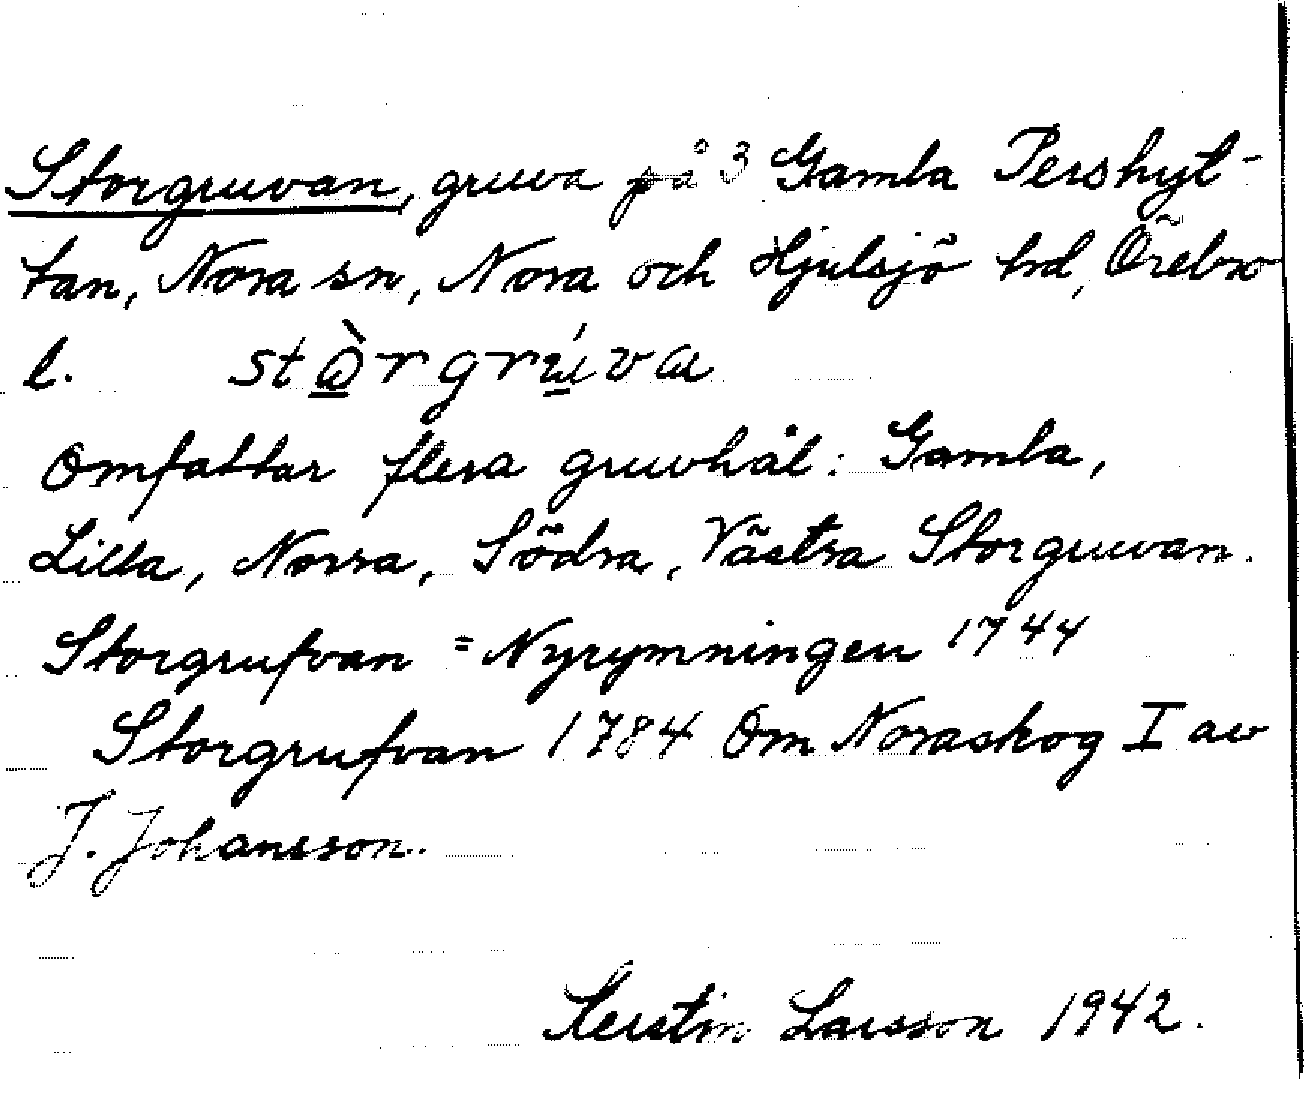 Storgruvan, gruva på 3 Gamla Pershyt-
tan, Nora sn, Nora och Hjulsjö hd, Örebro
l. stòrgrúva
Omfattar flera gruvhål: Gamla,
Lilla, Norra, Södra, Västra Storgruvan.
Storgrufvan = Nyrymningen 1744
Storgrufvan 1784 Om Noraskog I av
J. Johansson.
Kerstin Larsson 1942.